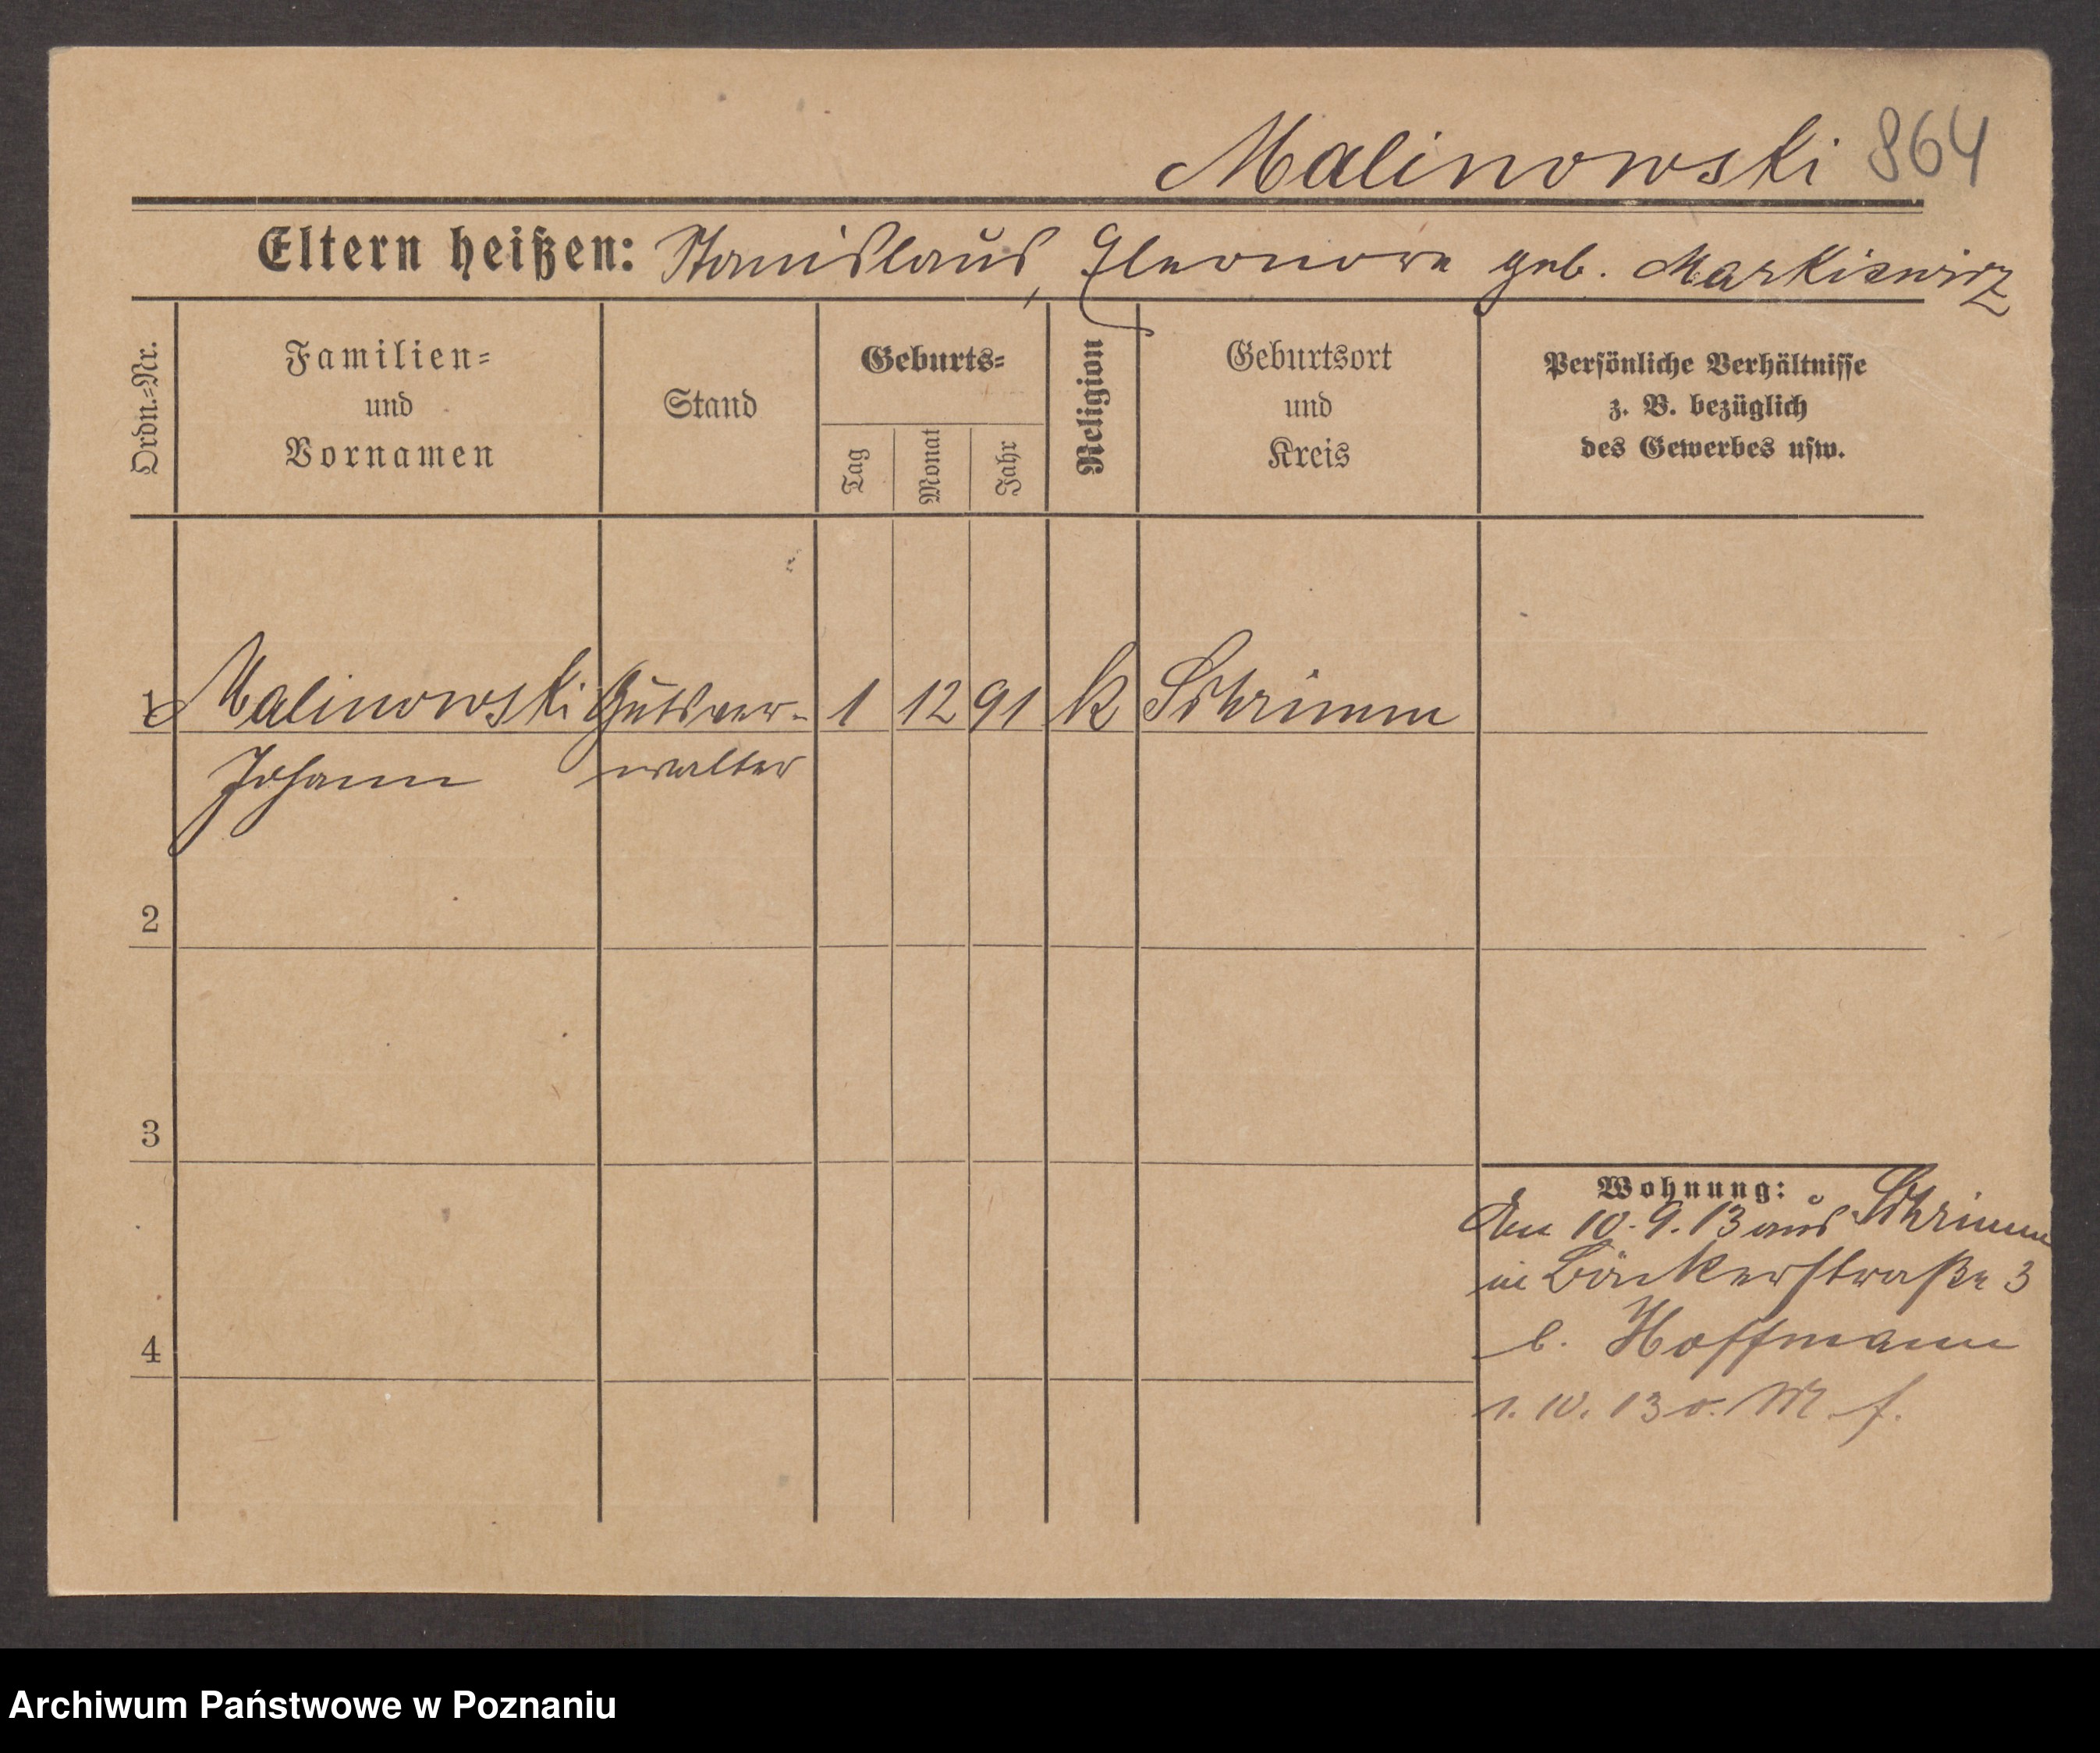 Malinowski 864
Eltern heißen: Stanislaus, Eleonore geb. Markiewicz
Ordn.=Nr.
Familien=
und
Vornamen
Stand
Geburts=
Tag
Monat
Jahr
Religion
Geburtsort
und
Kreis
Persönliche Verhältnisse
z. B. bezüglich
des Gewerbes usw.
1 Malinowski Gutsver- 1 12 91 k Schrimm
Johann walter
2
3
4
Wohnung:
Am 10.9.13 aus Schrimm
in Bäckerstraße 3
b. Hoffmann
1.10.13 o. M. f.
Archiwum Państwowe w Poznaniu